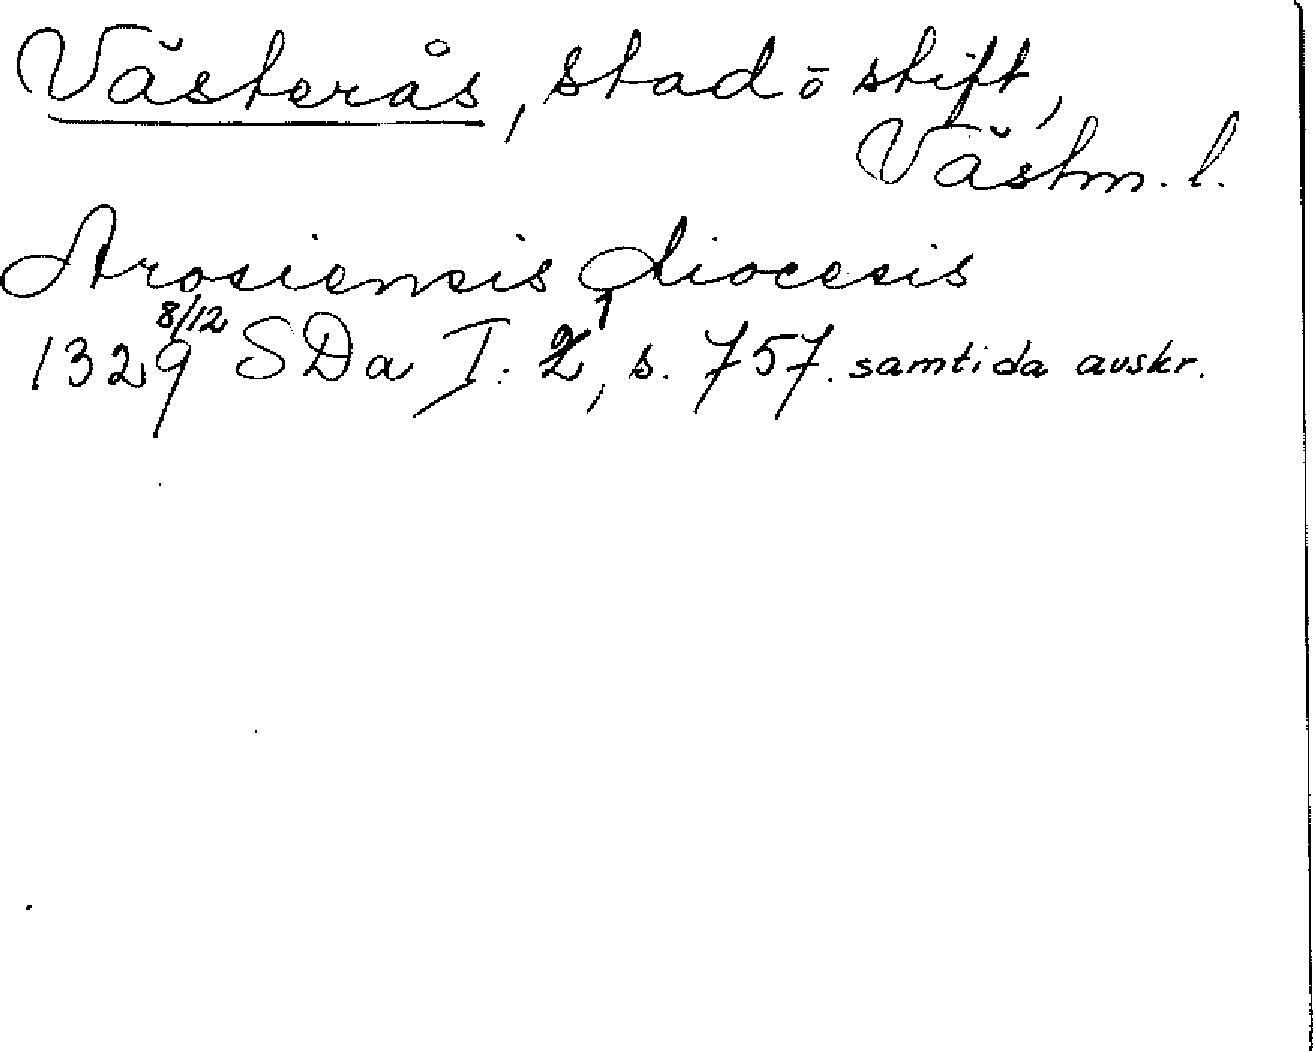 Västerås, stad o stift,
Västm. l.
Arosiensis diocesis
1329 8/12 SDa I. 1, s. 757. samtida avskr.